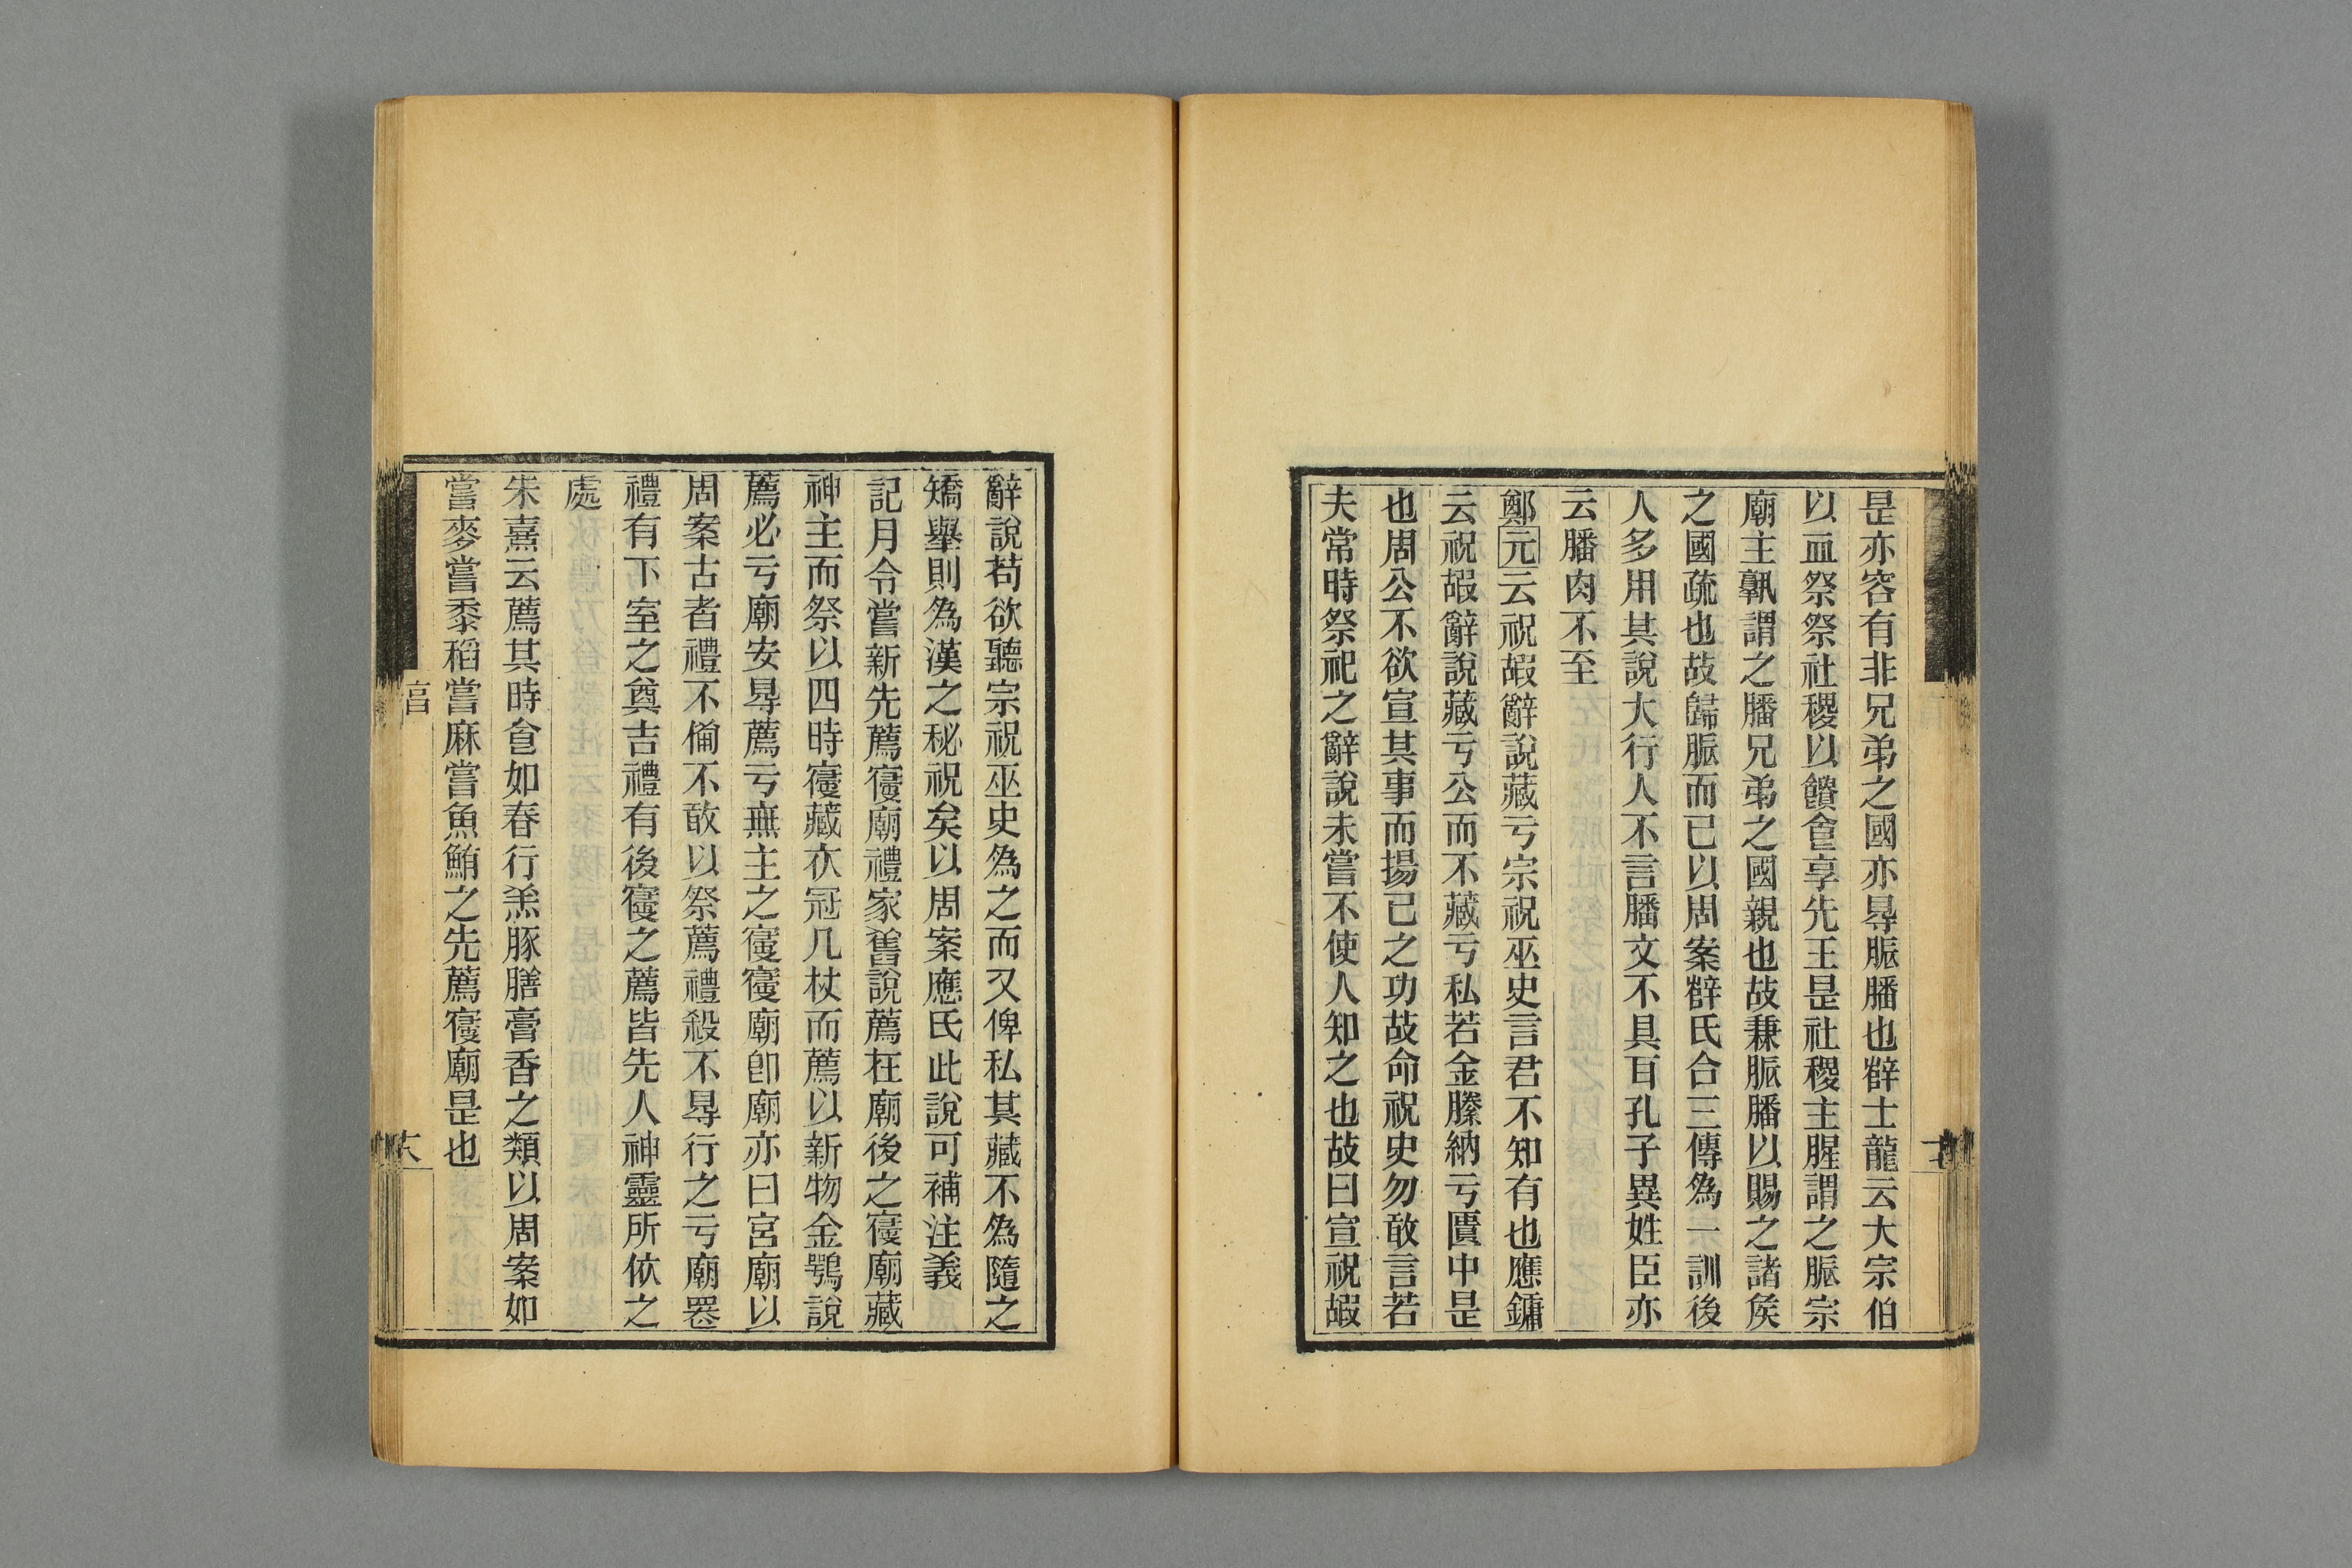 是亦容有非兄弟之國亦㝵脤膰也辥士龍云大宗伯
以血祭祭社稷以饋𠊊享先王是社稷主腥謂之脤宗
廟主孰謂之膰兄弟之國親也故兼脤膰以賜之諸矦
之國疏也故歸脤而已以周案辥氏合三傳為一訓後
人多用其說大行人不言膰文不具耳孔子異姓臣亦
云膰肉不至
鄭元云祝嘏辭說藏亏宗祝巫史言君不知有也應鏞
云祝嘏辭說藏亏公而不藏亏私若金縢納亏匱中是
也周公不欲宣其事而揚已之功故命祝史勿敢言若
夫常時祭祀之辭說未嘗不使人知之也故曰宣祝嘏
辭說苟欲聽宗祝巫史為之而又俾私其藏不為隨之
矯舉則為漢之秘祝矣以周案應氏此說可補注義
記月令嘗新先薦寑廟禮家舊說薦在廟後之寑廟藏
神主而祭以四時寑藏衣冠几杖而薦以新物金鶚說
薦必亏廟安㝵薦亏無主之寑寑廟卽廟亦曰宮廟以
周案古者禮不僃不敢以祭薦禮殺不㝵行之亏廟䘮
禮有下室之奠吉禮有後寑之薦皆先人神靈所依之
處
朱熹云薦其時食如春行羔豚膳膏香之類以周案如
嘗麥嘗黍稻嘗麻嘗魚鮪之先薦寑廟是也
六